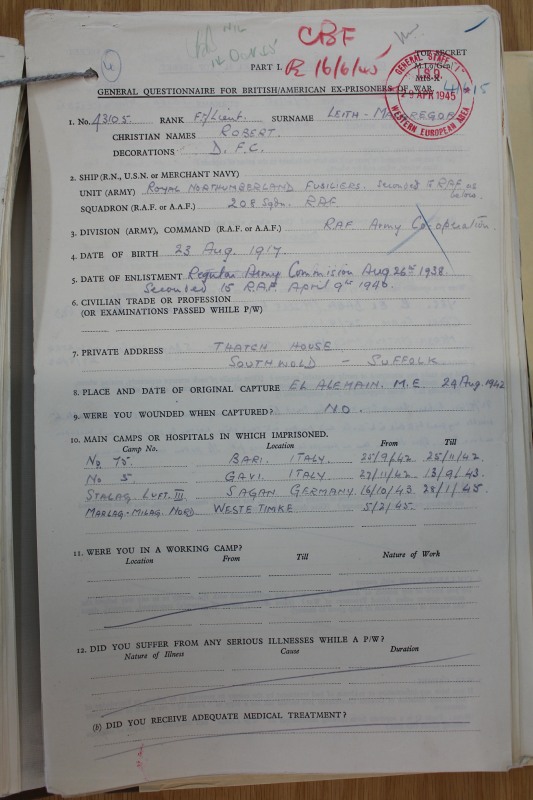 CBF
TOP SECRET
PART I. 16/6/45 M.I.9/Gen/
MIS-X
GENERAL QUESTIONNAIRE FOR BRITISH/AMERICAN EX-PRISONERS OF WAR
GENERAL STAFF "I"
29 APR 1945
WESTERN EUROPEAN AREA
1. No. 43105. RANK F/Lieut. SURNAME LEITH-MACGREGOR
CHRISTIAN NAMES ROBERT.
DECORATIONS D.F.C.
2. SHIP (R.N., U.S.N. or MERCHANT NAVY)
UNIT (ARMY) ROYAL NORTHUMBERLAND FUSILIERS. seconded to RAF as below.
SQUADRON (R.A.F. or A.A.F.) 208 Sqdn. RAF
3. DIVISION (ARMY), COMMAND (R.A.F. or A.A.F.) RAF Army Co-operation.
4. DATE OF BIRTH 23 Aug. 1917.
5. DATE OF ENLISTMENT Regular Army Commission Aug 26th 1938.
Seconded to R.A.F. April 9th 1940.
6. CIVILIAN TRADE OR PROFESSION
(OR EXAMINATIONS PASSED WHILE P/W)
7. PRIVATE ADDRESS THATCH HOUSE
SOUTHWOLD - SUFFOLK
8. PLACE AND DATE OF ORIGINAL CAPTURE EL ALEMAIN. M.E. 29 Aug. 1942
9. WERE YOU WOUNDED WHEN CAPTURED? NO.
10. MAIN CAMPS OR HOSPITALS IN WHICH IMPRISONED.
Camp No. Location From Till
No 75. BARI. ITALY. 25/9/42. 25/11/42.
No 5. GAVI. ITALY 27/11/42 13/9/43.
STALAG LUFT. III SAGAN GERMANY. 16/10/43 28/1/45.
MARLAG-MILAG NORD WESTETIMKE 5/2/45.
11. WERE YOU IN A WORKING CAMP?
Location From Till Nature of Work
12. DID YOU SUFFER FROM ANY SERIOUS ILLNESSES WHILE A P/W?
Nature of Illness Cause Duration
(b) DID YOU RECEIVE ADEQUATE MEDICAL TREATMENT?